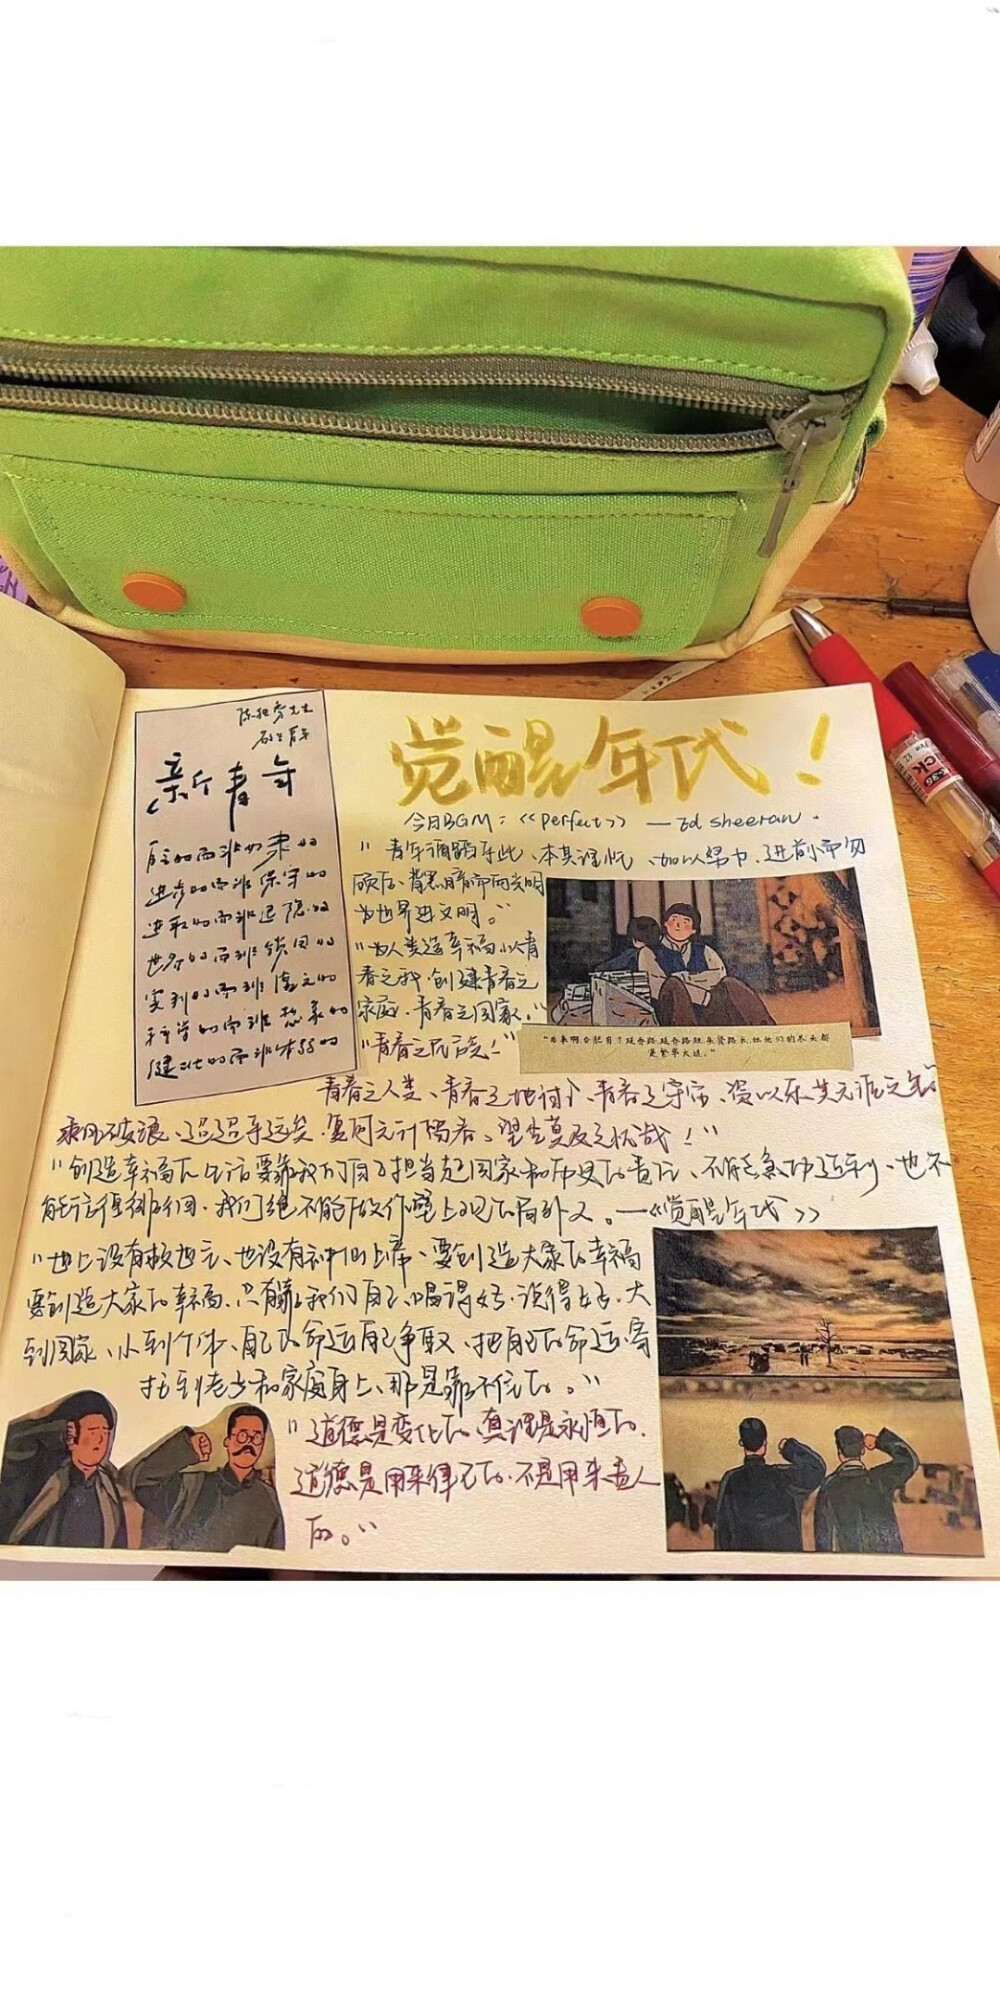 陈独秀先生
新青年
自主的而非奴隶的
进步的而非保守的
进取的而非退隐的
世界的而非锁国的
实利的而非虚文的
科学的而非想象的
健壮的而非体弱的
觉醒年代！
今日BGM：《perfect》—Ed sheeran.
"青年循蹈乎此、本其理性、加以努力、进前而勿
顾后、背黑暗而向光明
为世界进文明。"
"为人类造幸福，以青
春之我，创建青春之
家庭，青春之国家。"
"青春之民族！"
"后来啊,合肥有了延乔路,延乔路短,集贤路长,但他们的尽头都
是繁华大道。"
青春之人类、青春之地球、青春之宇宙、资以乐其无涯之生。
乘风破浪、迢迢乎远矣、复何无计留春、望尘莫及之忧哉！"
"创造幸福的生活要靠我们自己担当起国家和历史的责任、不能急功近利、也不
能论徘徊、我们绝不能做作壁上观的局外人。—《觉醒年代》
"世上没有救世主、也没有神仙上帝、要创造大家的幸福
要创造大家的幸福、只有靠我们自己、唱得好，说得好，大
到国家、小到个体、自己的命运自己争取、把自己的命运寄
托到老乡和家庭身上、那是靠不住的。"
"道德是变化的、真理是永恒的、
道德是用来律己的、不是用来责人
的。"